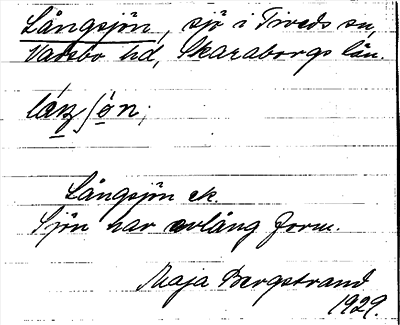 Långsjön, sjö i Tiveds sn,
Vadsbo hd, Skaraborgs län.
Långsjön ek.
Sjön har avlång form.
Maja Bergstrand
1929.